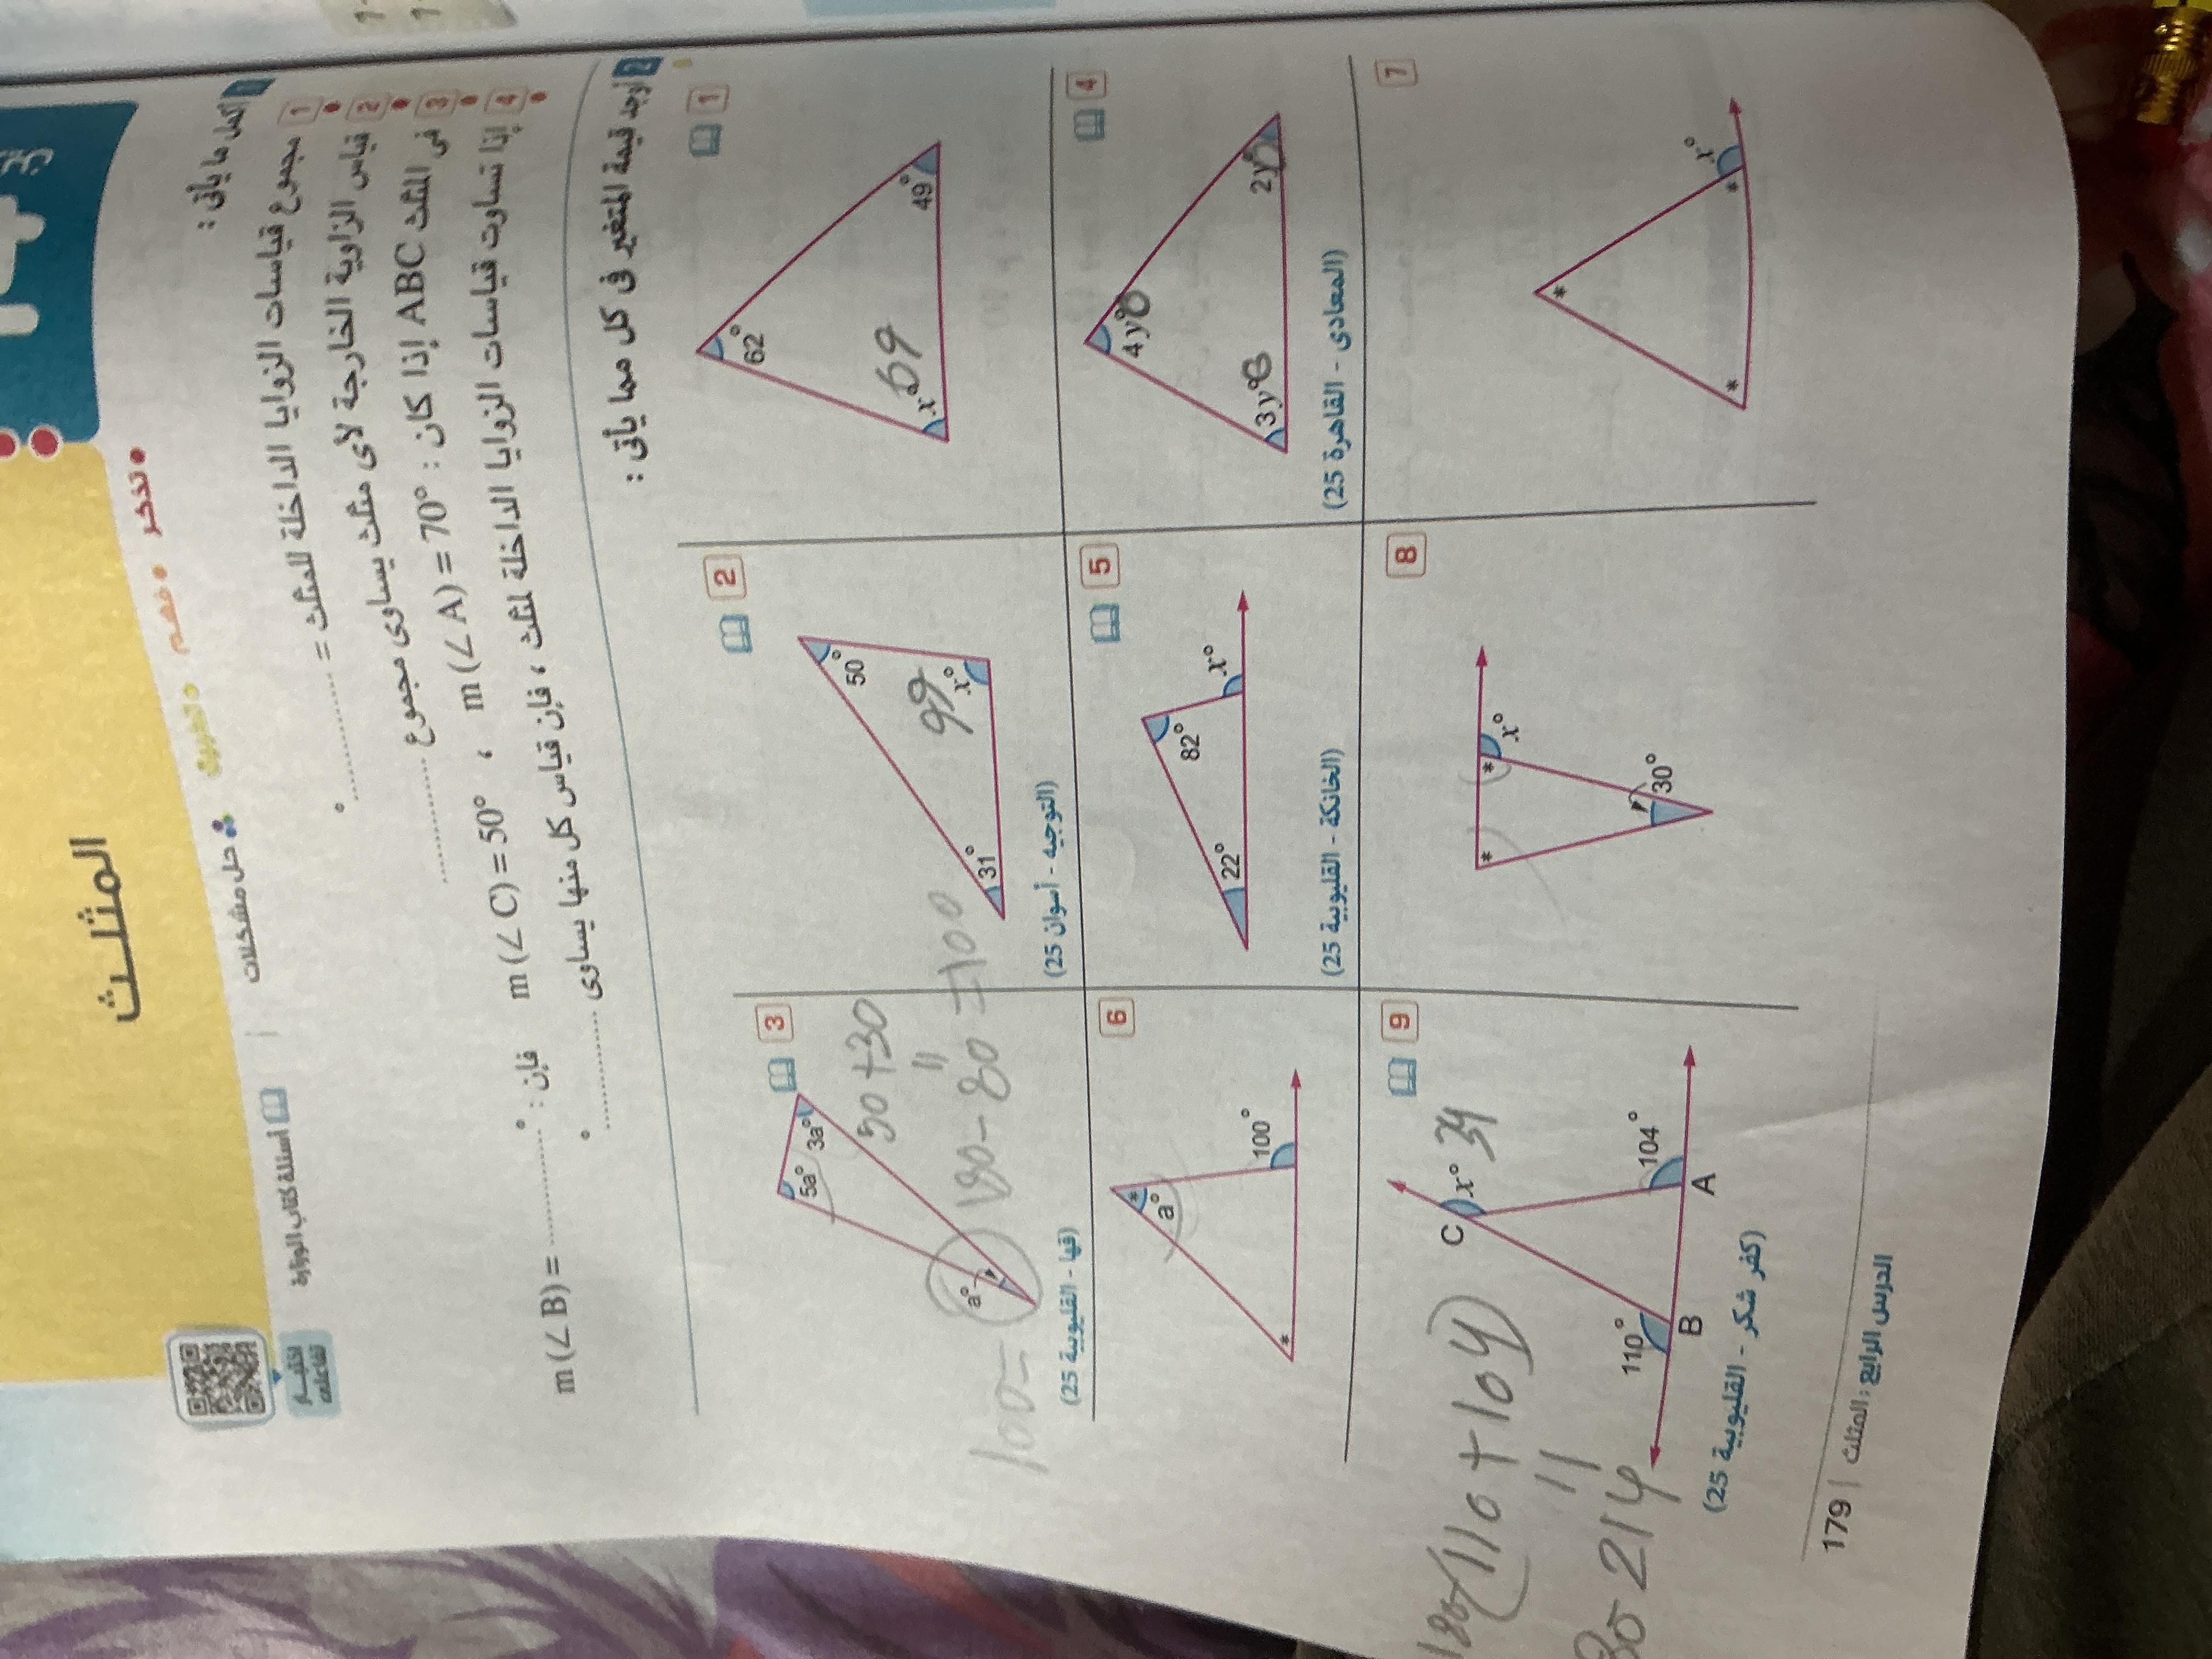 المثلث
تذكر • فهم • تطبيق • حل مشكلات
أسئلة كتاب الوزارة
اختبار تفاعلي
1 أكمل ما يأتى :
1 مجموع قياسات الزوايا الداخلة للمثلث = ............ °
2 قياس الزاوية الخارجة لأى مثلث يساوى مجموع ............
3 فى المثلث ABC إذا كان : m (∠ A) = 70° ، m (∠ C) = 50° فإن : m (∠ B) = ............ °
4 إذا تساوت قياسات الزوايا الداخلة لمثلث ، فإن قياس كل منها يساوى ............ °
2 أوجد قيمة المتغير فى كل مما يأتى :
1
62°
49°
x°
69
2
50°
31°
x°
99
(التوجيه - أسوان 25)
3
5a°
3a°
a°
50 + 30
=
180 - 80 = 100
100 =
(قها - القليوبية 25)
4
4y°
3y°
2y°
(المعادى - القاهرة 25)
5
82°
22°
x°
(الخانكة - القليوبية 25)
6
*
a°
*
100°
7
*
*
*
x°
8
*
*
x°
30°
9
C
x°
34
110°
104°
B
A
110 + 104
=
214
(كفر شكر - القليوبية 25)
179 | الدرس الرابع : المثلث